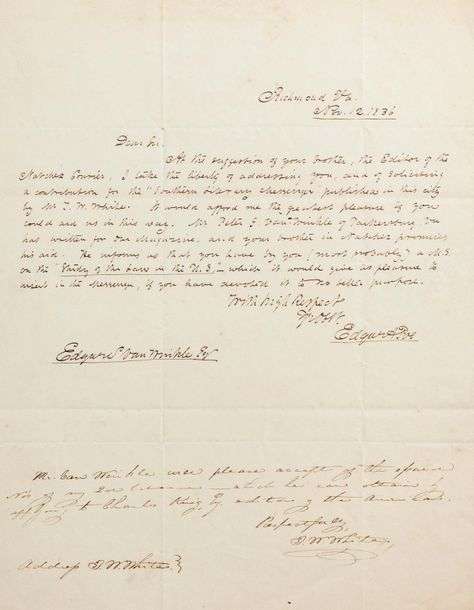 Richmond Va.
Nov. 12. 1836
Dear Sir,
At the suggestion of your brother, the Editor of the
Natchez Courier, I take the liberty of addressing you, and of soliciting
a contribution for the "Southern Literary Messenger" published in this city
by Mr T. W. White. It would afford me the greatest pleasure if you
could aid us in this way. Mr Peter G. Van Winkle of Parkersburg, Va
has written for our Magazine, and your brother in Natchez promises
his aid. He informs us that you have by you, most probably, a M.S
on the of the Laws in the U.S., which it would give us pleasure to
insert in the Messenger, if you have devoted it to no other purpose.
With high Respect
Yr. Obt
Edgar A. Poe
Edgar Van Winkle Esq
Mr. Van Winkle will please accept of the
Nos of my 2nd which he can obtain by
applying to Charles King, Esq editor of the American.
Respectfully,
T. W. White
Address T. W. White